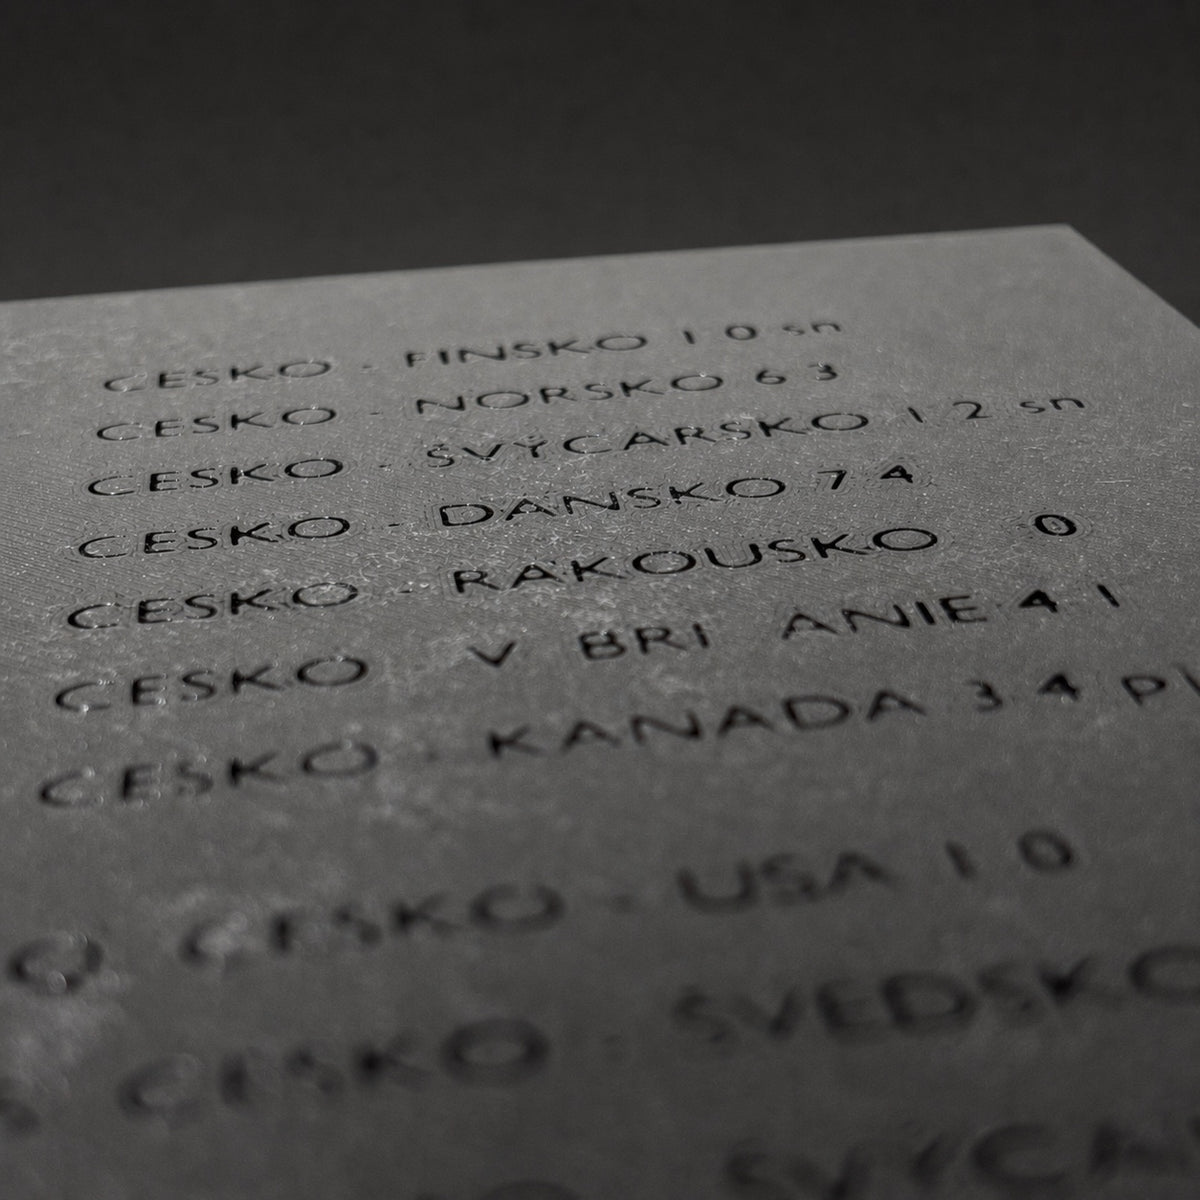 CESKO - FINSKO 1 0 sn
CESKO - NORSKO 6 3
CESKO - ŠVÝCARSKO 1 2 sn
CESKO - DANSKO 7 4
CESKO - RAKOUSKO 0
CESKO V BRI ANIE 4 1
CESKO - KANADA 3 4
CESKO - USA 1 0
CESKO - ŠVEDSKO